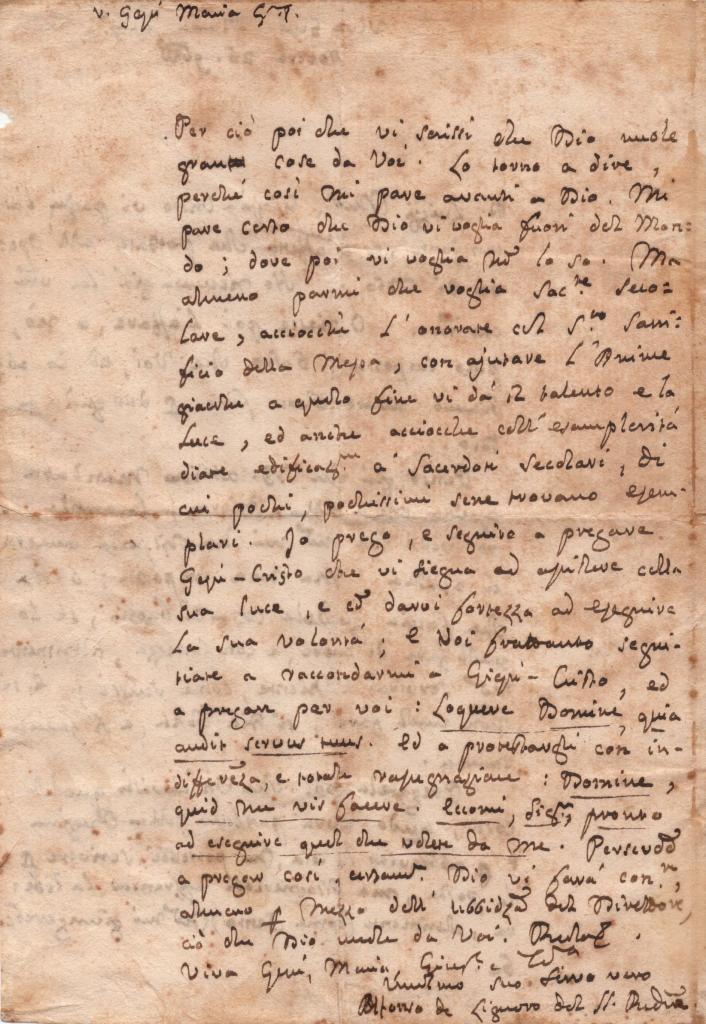 V. Gesù Maria G. e T.
Per ciò poi che vi scrissi che Dio vuole
gran cose da Voi. Lo torno a dire,
perché così mi pare avanti a Dio. Mi
pare certo che Dio vi voglia fuori del Mon=
do; dove poi vi voglia no lo so. Ma
almeno parmi che voglia Sac.te Seco=
lare, acciocché l'onorate col S.to Sacri=
ficio della Messa, con ajutare l'Anime
giacché a questo fine vi dà il talento e la
luce, ed anche acciocche coll'esemplarità
diate edificaz.ne a' Sacerdoti secolari, di
cui pochi, pochissimi sene trovano esem=
plari. Io prego, e seguiro a pregare
Gesù-Cristo che vi siegua ad assistere colla
sua luce, e darvi fortezza ad eseguire
la sua volontà; e Voi frattanto segui=
tiate a raccordarmi a Giesù-Cristo, ed
a pregare per voi: Loquere Domine, quia
audit servus tuus. Ed a protestargli con in=
differeza, e totale rassegnazione: Domine,
quid me vis facere. Eccomi, pronto
ad eseguire quel che volete da me.
a pregar così, Dio vi farà
almeno p mezzo dell'ubbidza del Direttore,
ciò che Dio vuole da Voi.
Viva Gesù, Maria, Gius. e T.sa
Umilmo suo servo vero
Alfonso de Liguoro del SS. Redre.